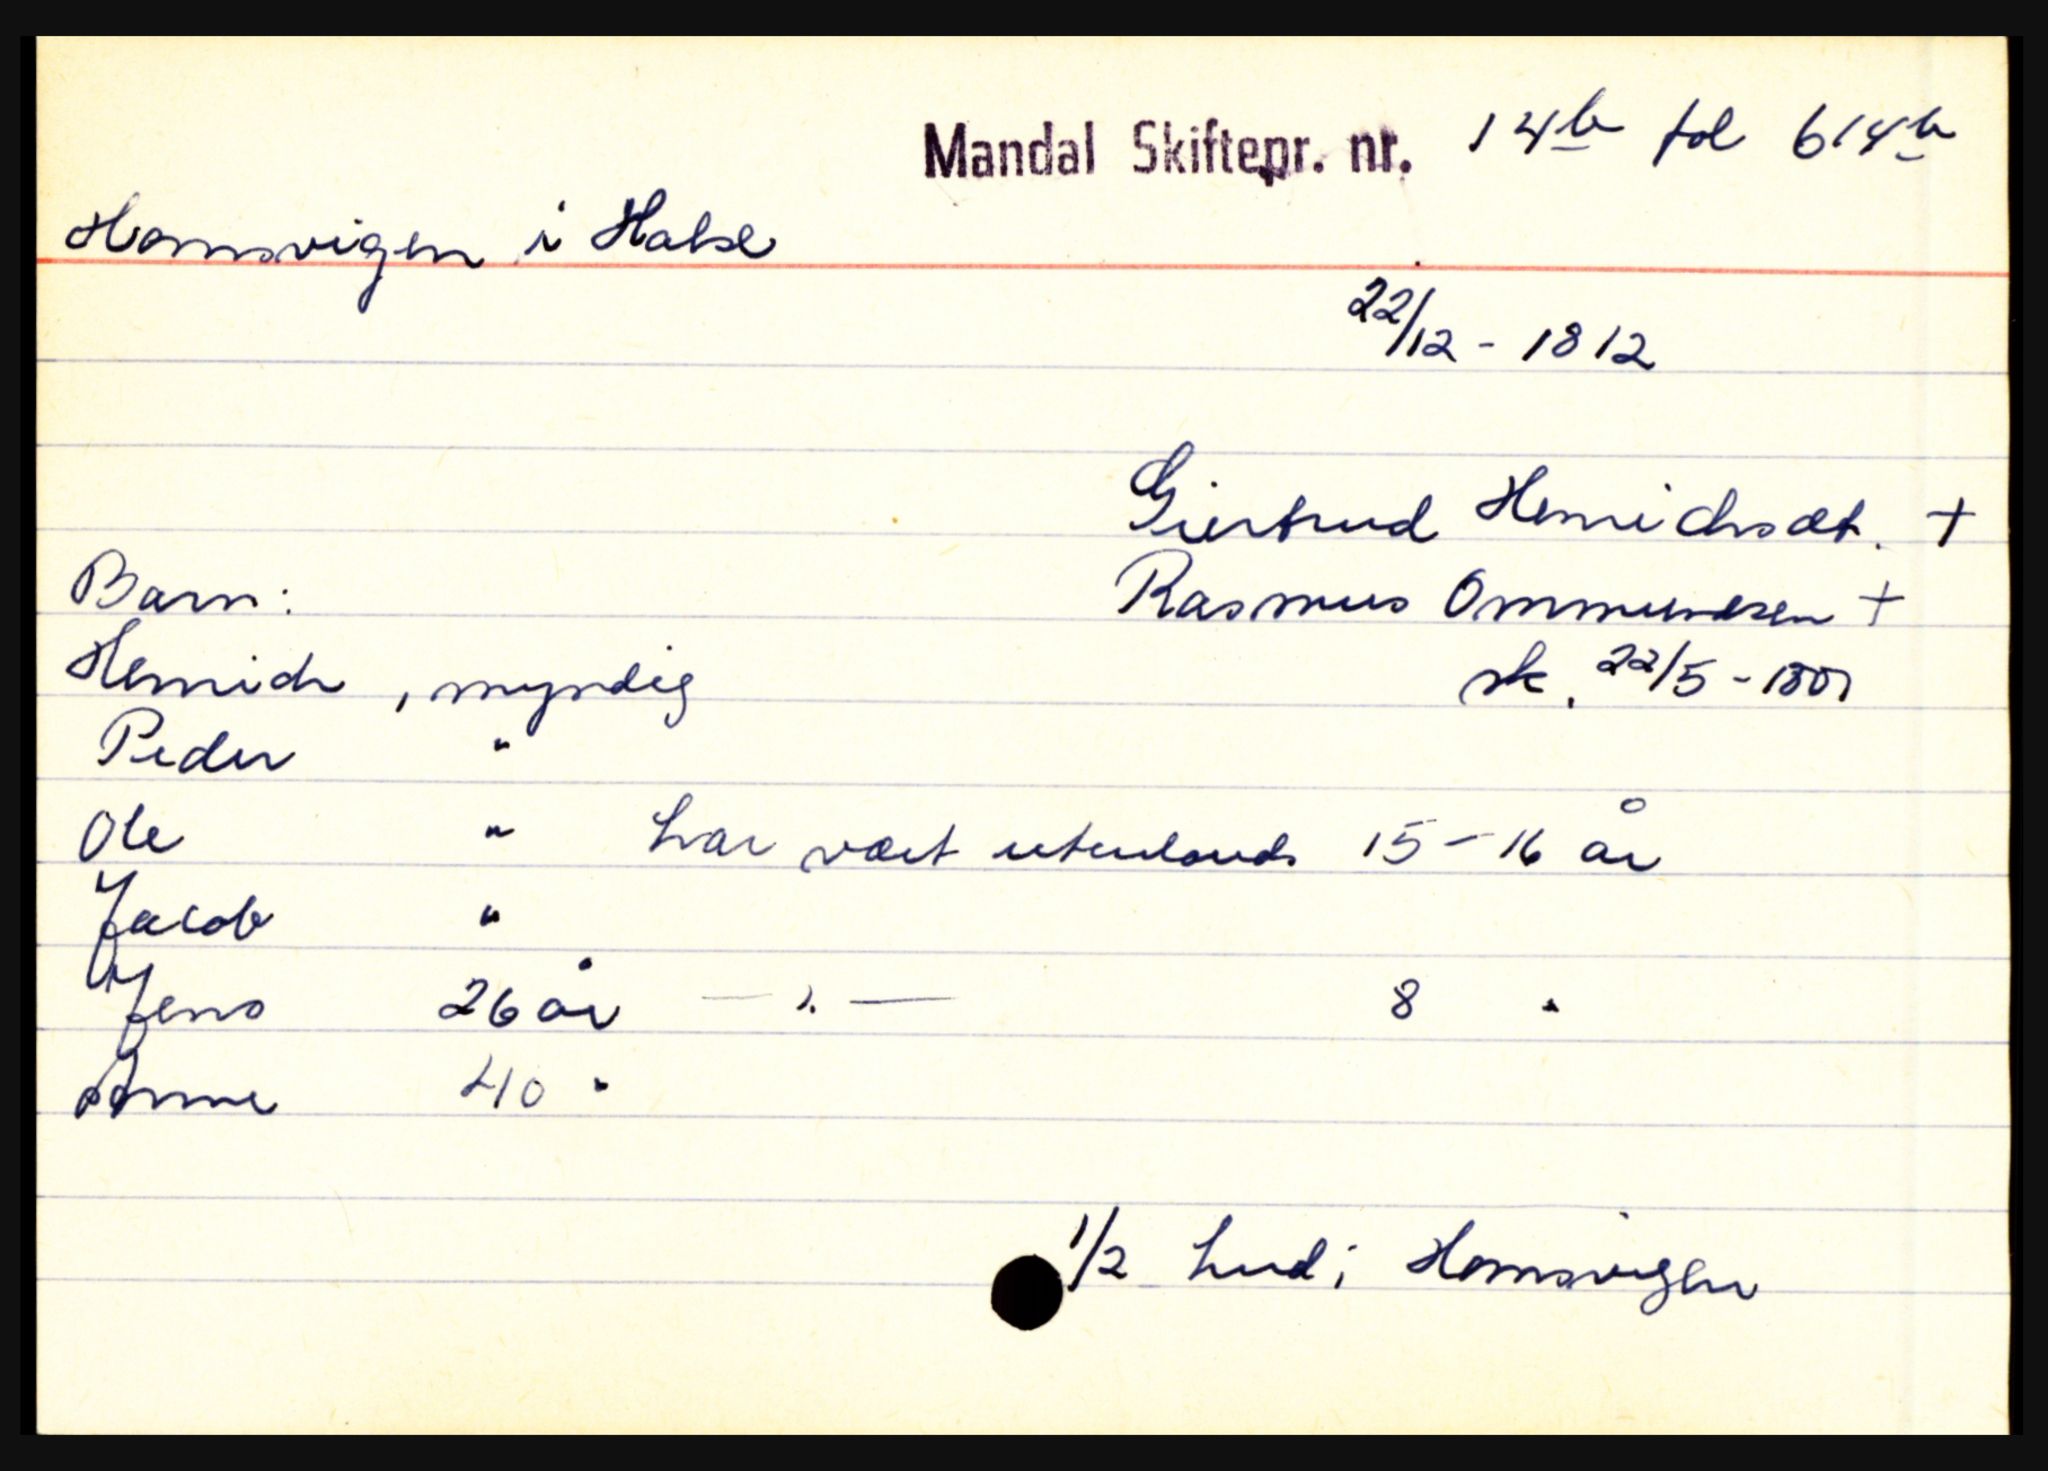 Mandal Skiftepr. nr. 14b fol 614b
Homsvigen i Halse
22/12 - 1812
Giertrud Henrichsdt. +
Barn: Rasmus Ommundsen +
Henrich, myndig sk. 22/5 - 1801
Peder "
Ole " har vært utenlands 15 - 16 år
Jacob "
Jens 26 år — " — 8 "
Anne 40 "
1/2 hud i Homsvigen